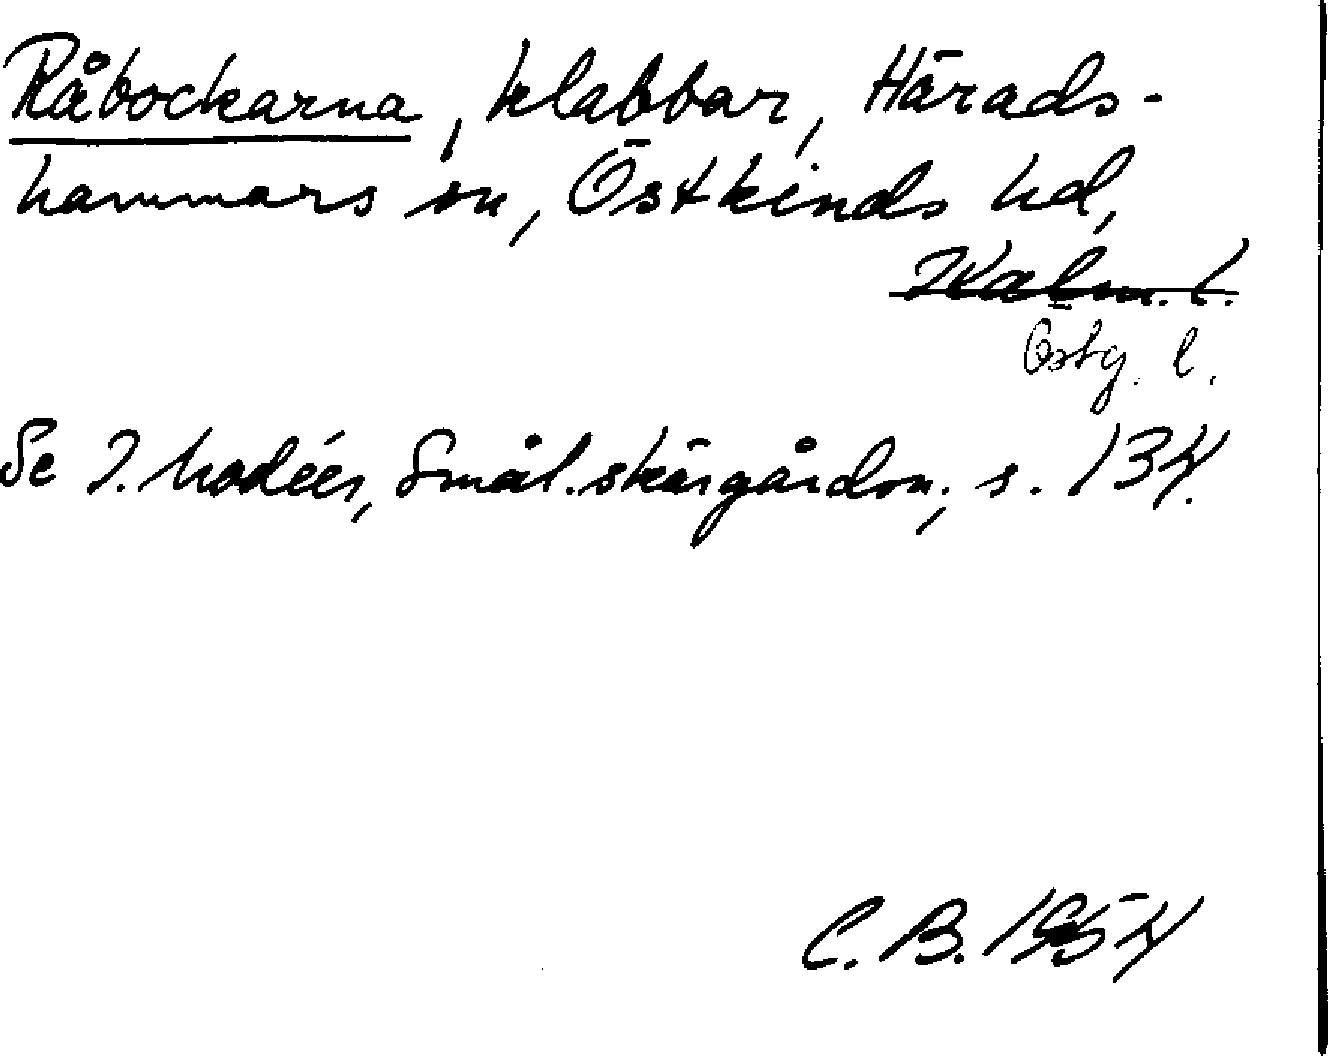 Råbockarna, klabbar, Härads-
hammars sn, Östkinds hd,
Kalm. l.
Östg. l.
Se I. Modéer, Smål. skärgårdsn., s. 134.
C. B. 1954